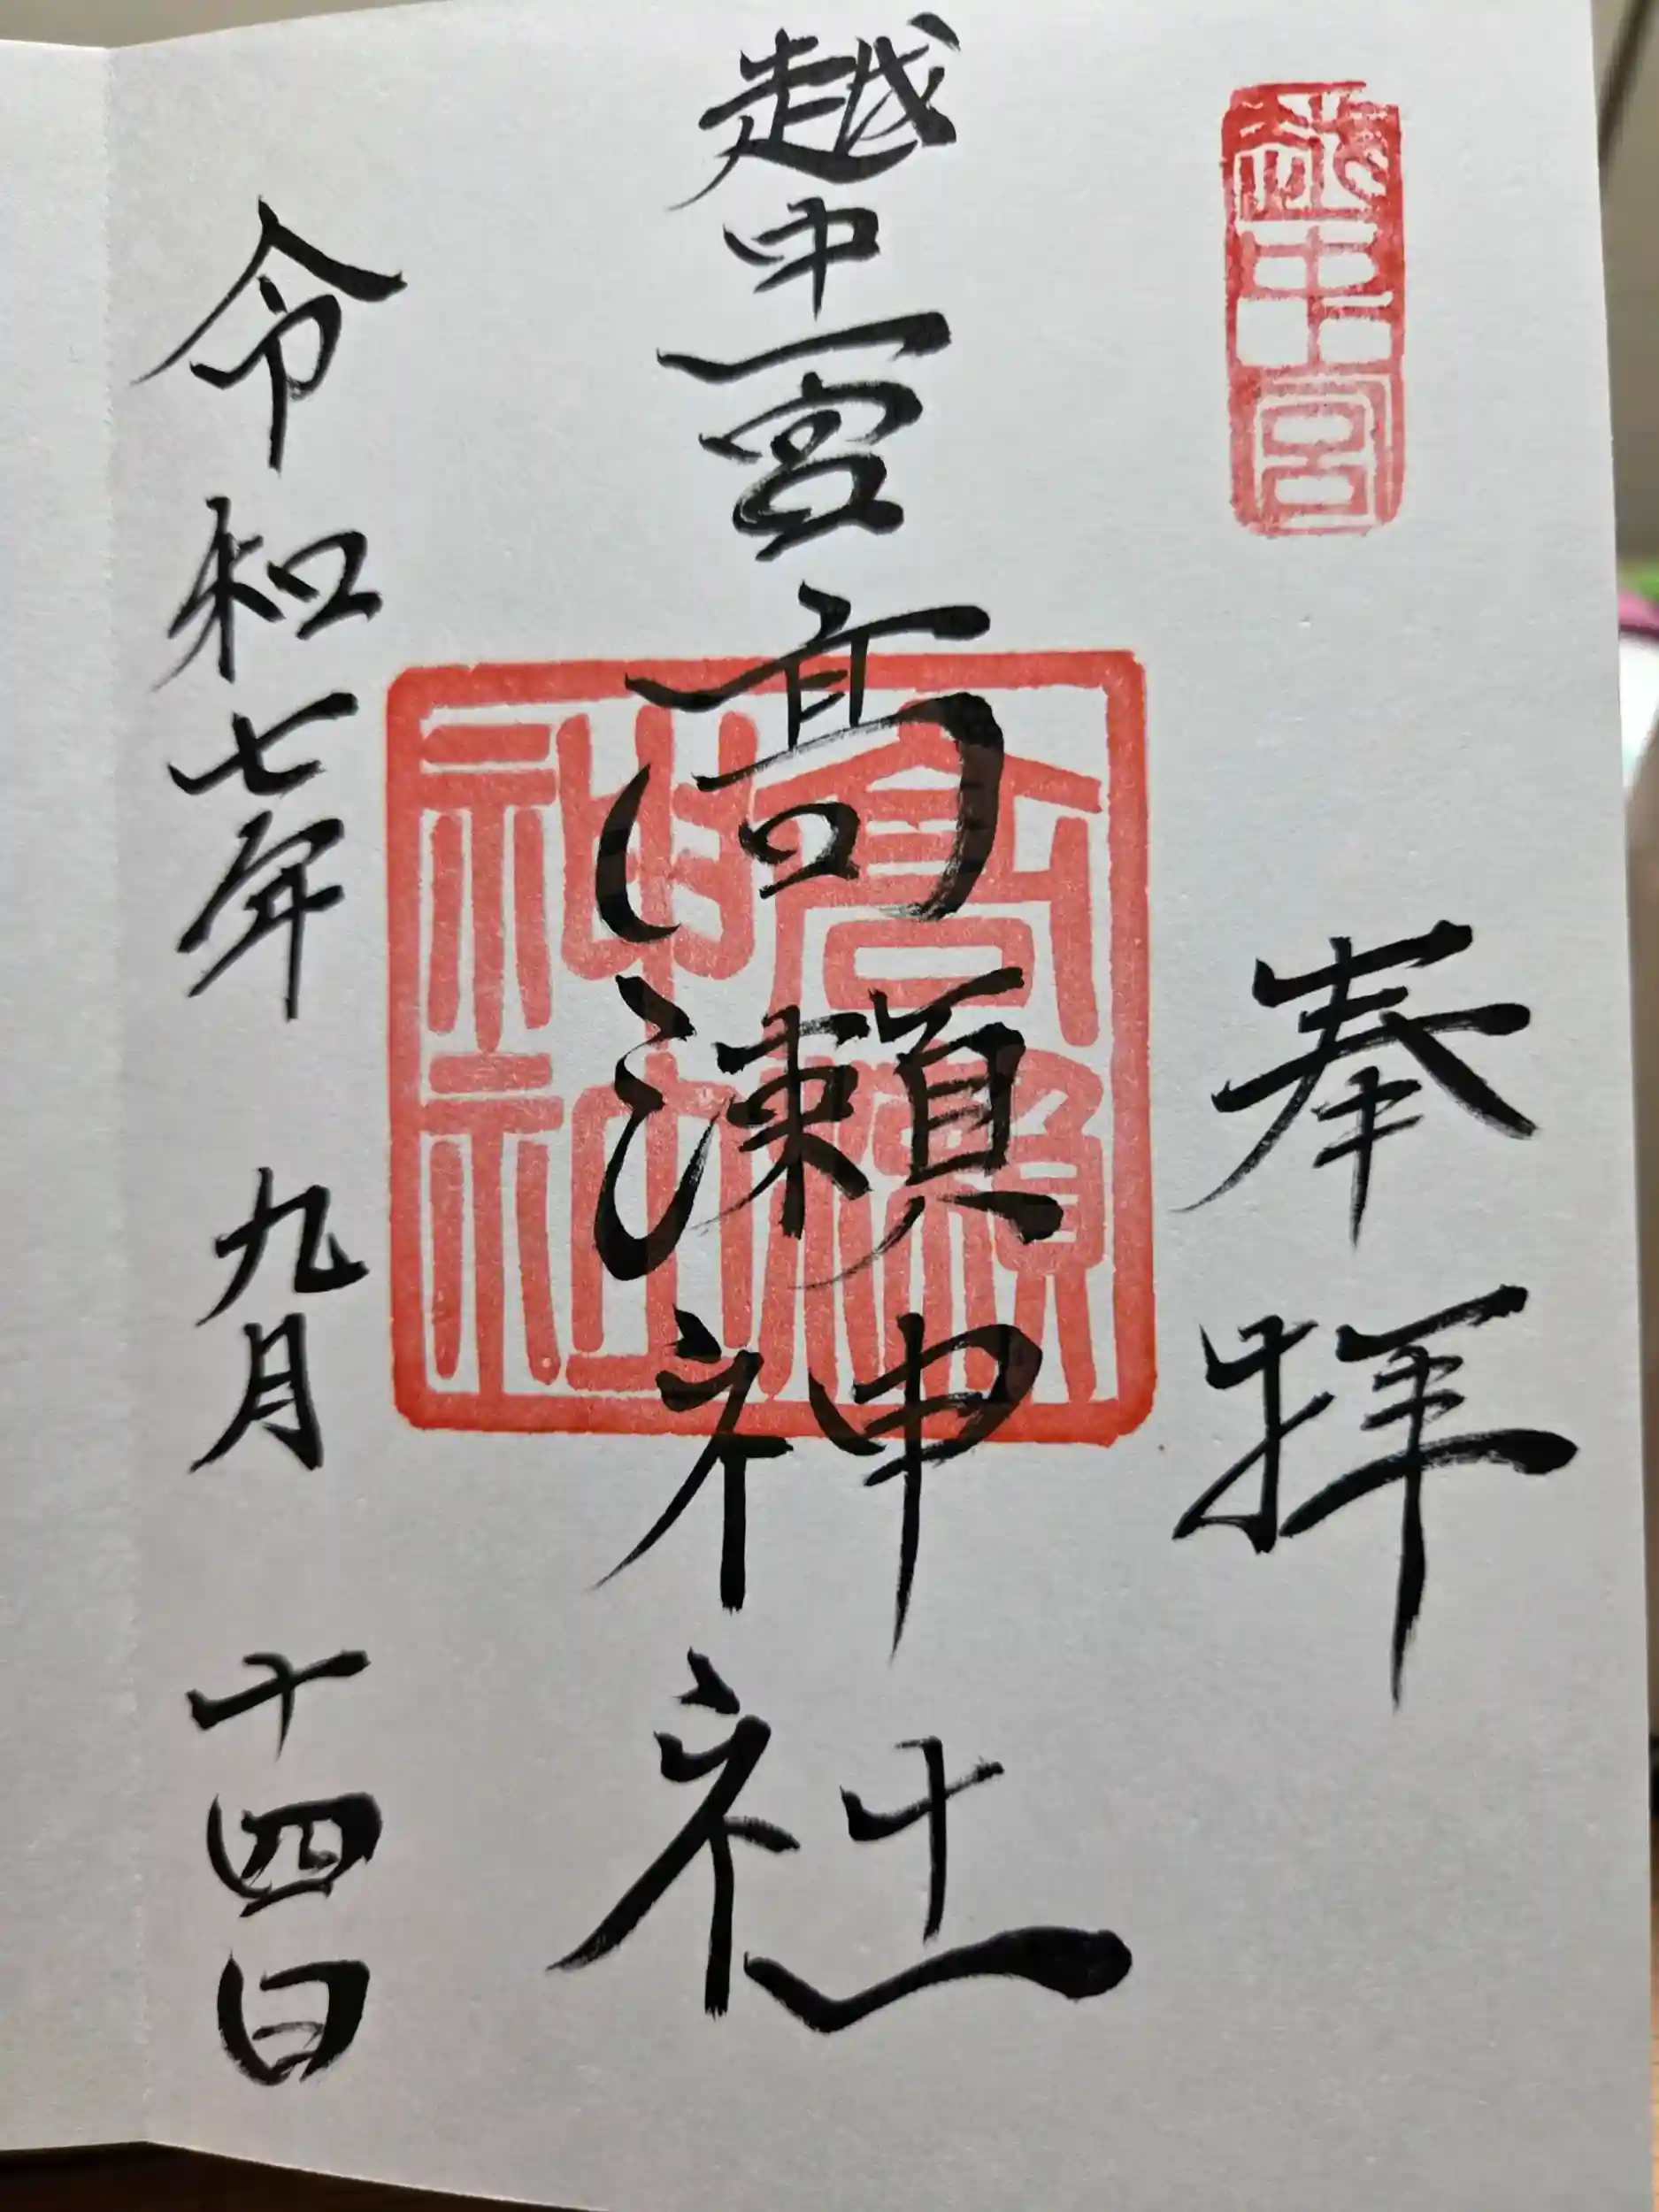 越中一宮
奉拝
越中一宮 高瀬神社
高瀬神社
令和七年 九月 十四日